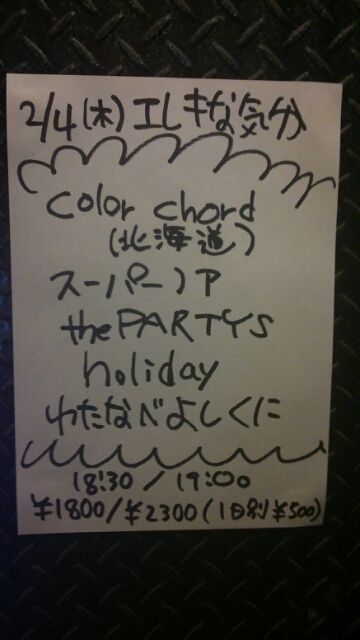 2/4(木)エレキな気分
color chord
(北海道)
スーパーノア
thePARTYS
holiday
わたなべよしくに
18:30 / 19:00
¥1800/¥2300(1D別¥500)